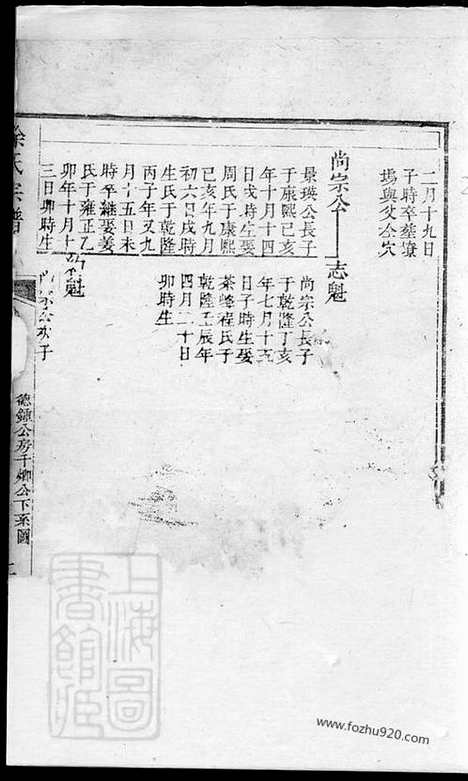 二月十九日
子時卒葬寮
塢與父仝穴
尚宗公
景瑛公長子
于康熙己亥
年十月十四
日戌時生娶
周氏于康熙
己亥年九月
初六日戌時
生氏于乾隆
丙子年又九
月十五日未
時卒繼娶姜
氏于雍正乙
卯年十月十
三日卯時生
志魁
尚宗公長子
于乾隆丁亥
年七月十三
日子時生娶
茶峰程氏于
乾隆壬辰年
四月二十日
卯時生
魁
尚宗公次子
徐氏宗譜
德鍾公房千卿公下系圖
上海圖書館藏
www.fozhu920.com